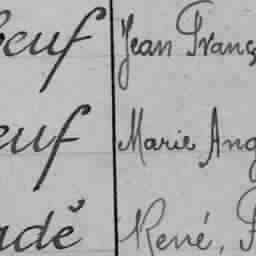 beuf Jean Franç
euf Marie Ang
adé René, F